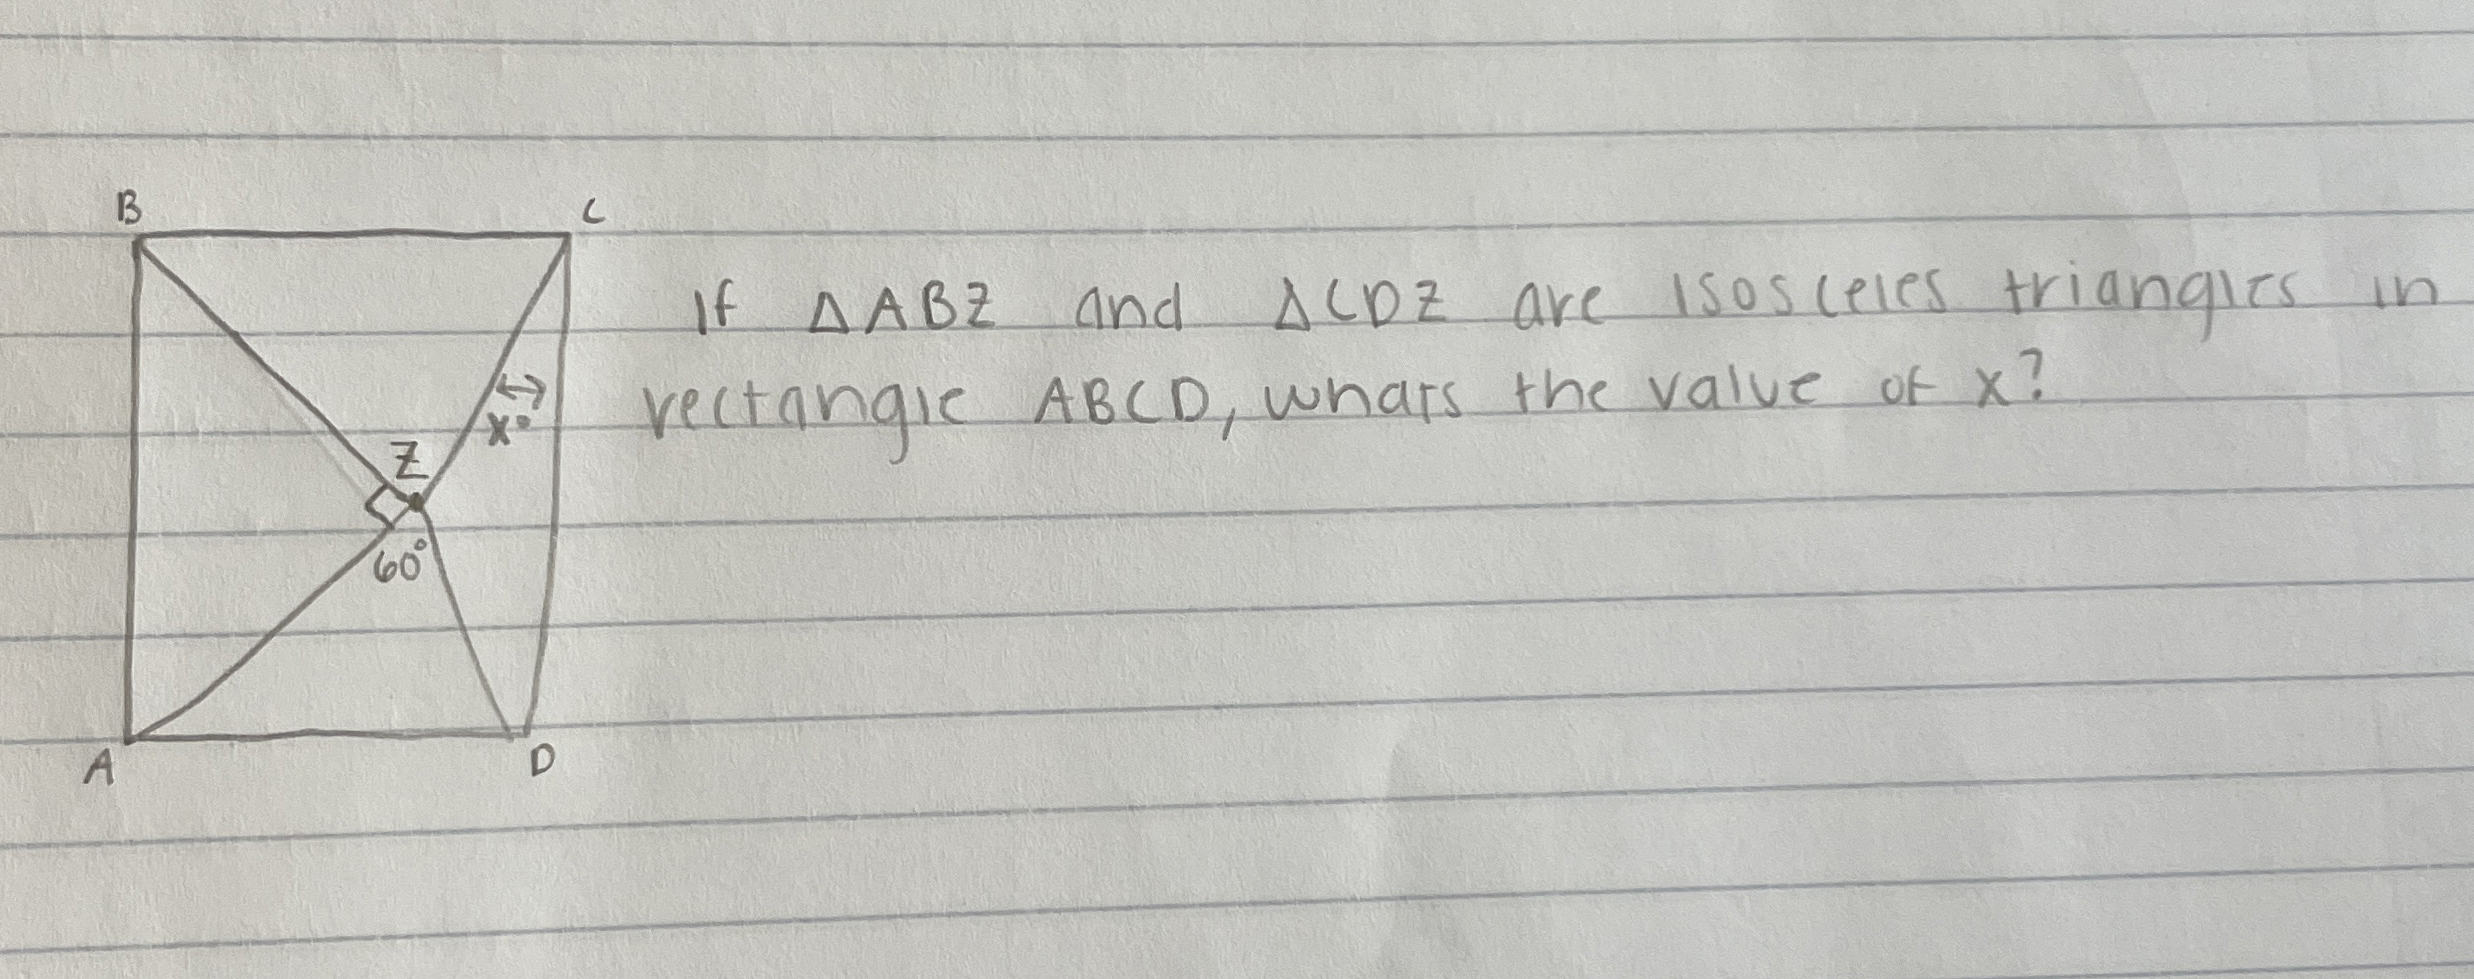 B
C
If △ABZ and △CDZ are isosceles triangles in
rectangle ABCD, whats the value of x?
x°
Z
60°
A
D